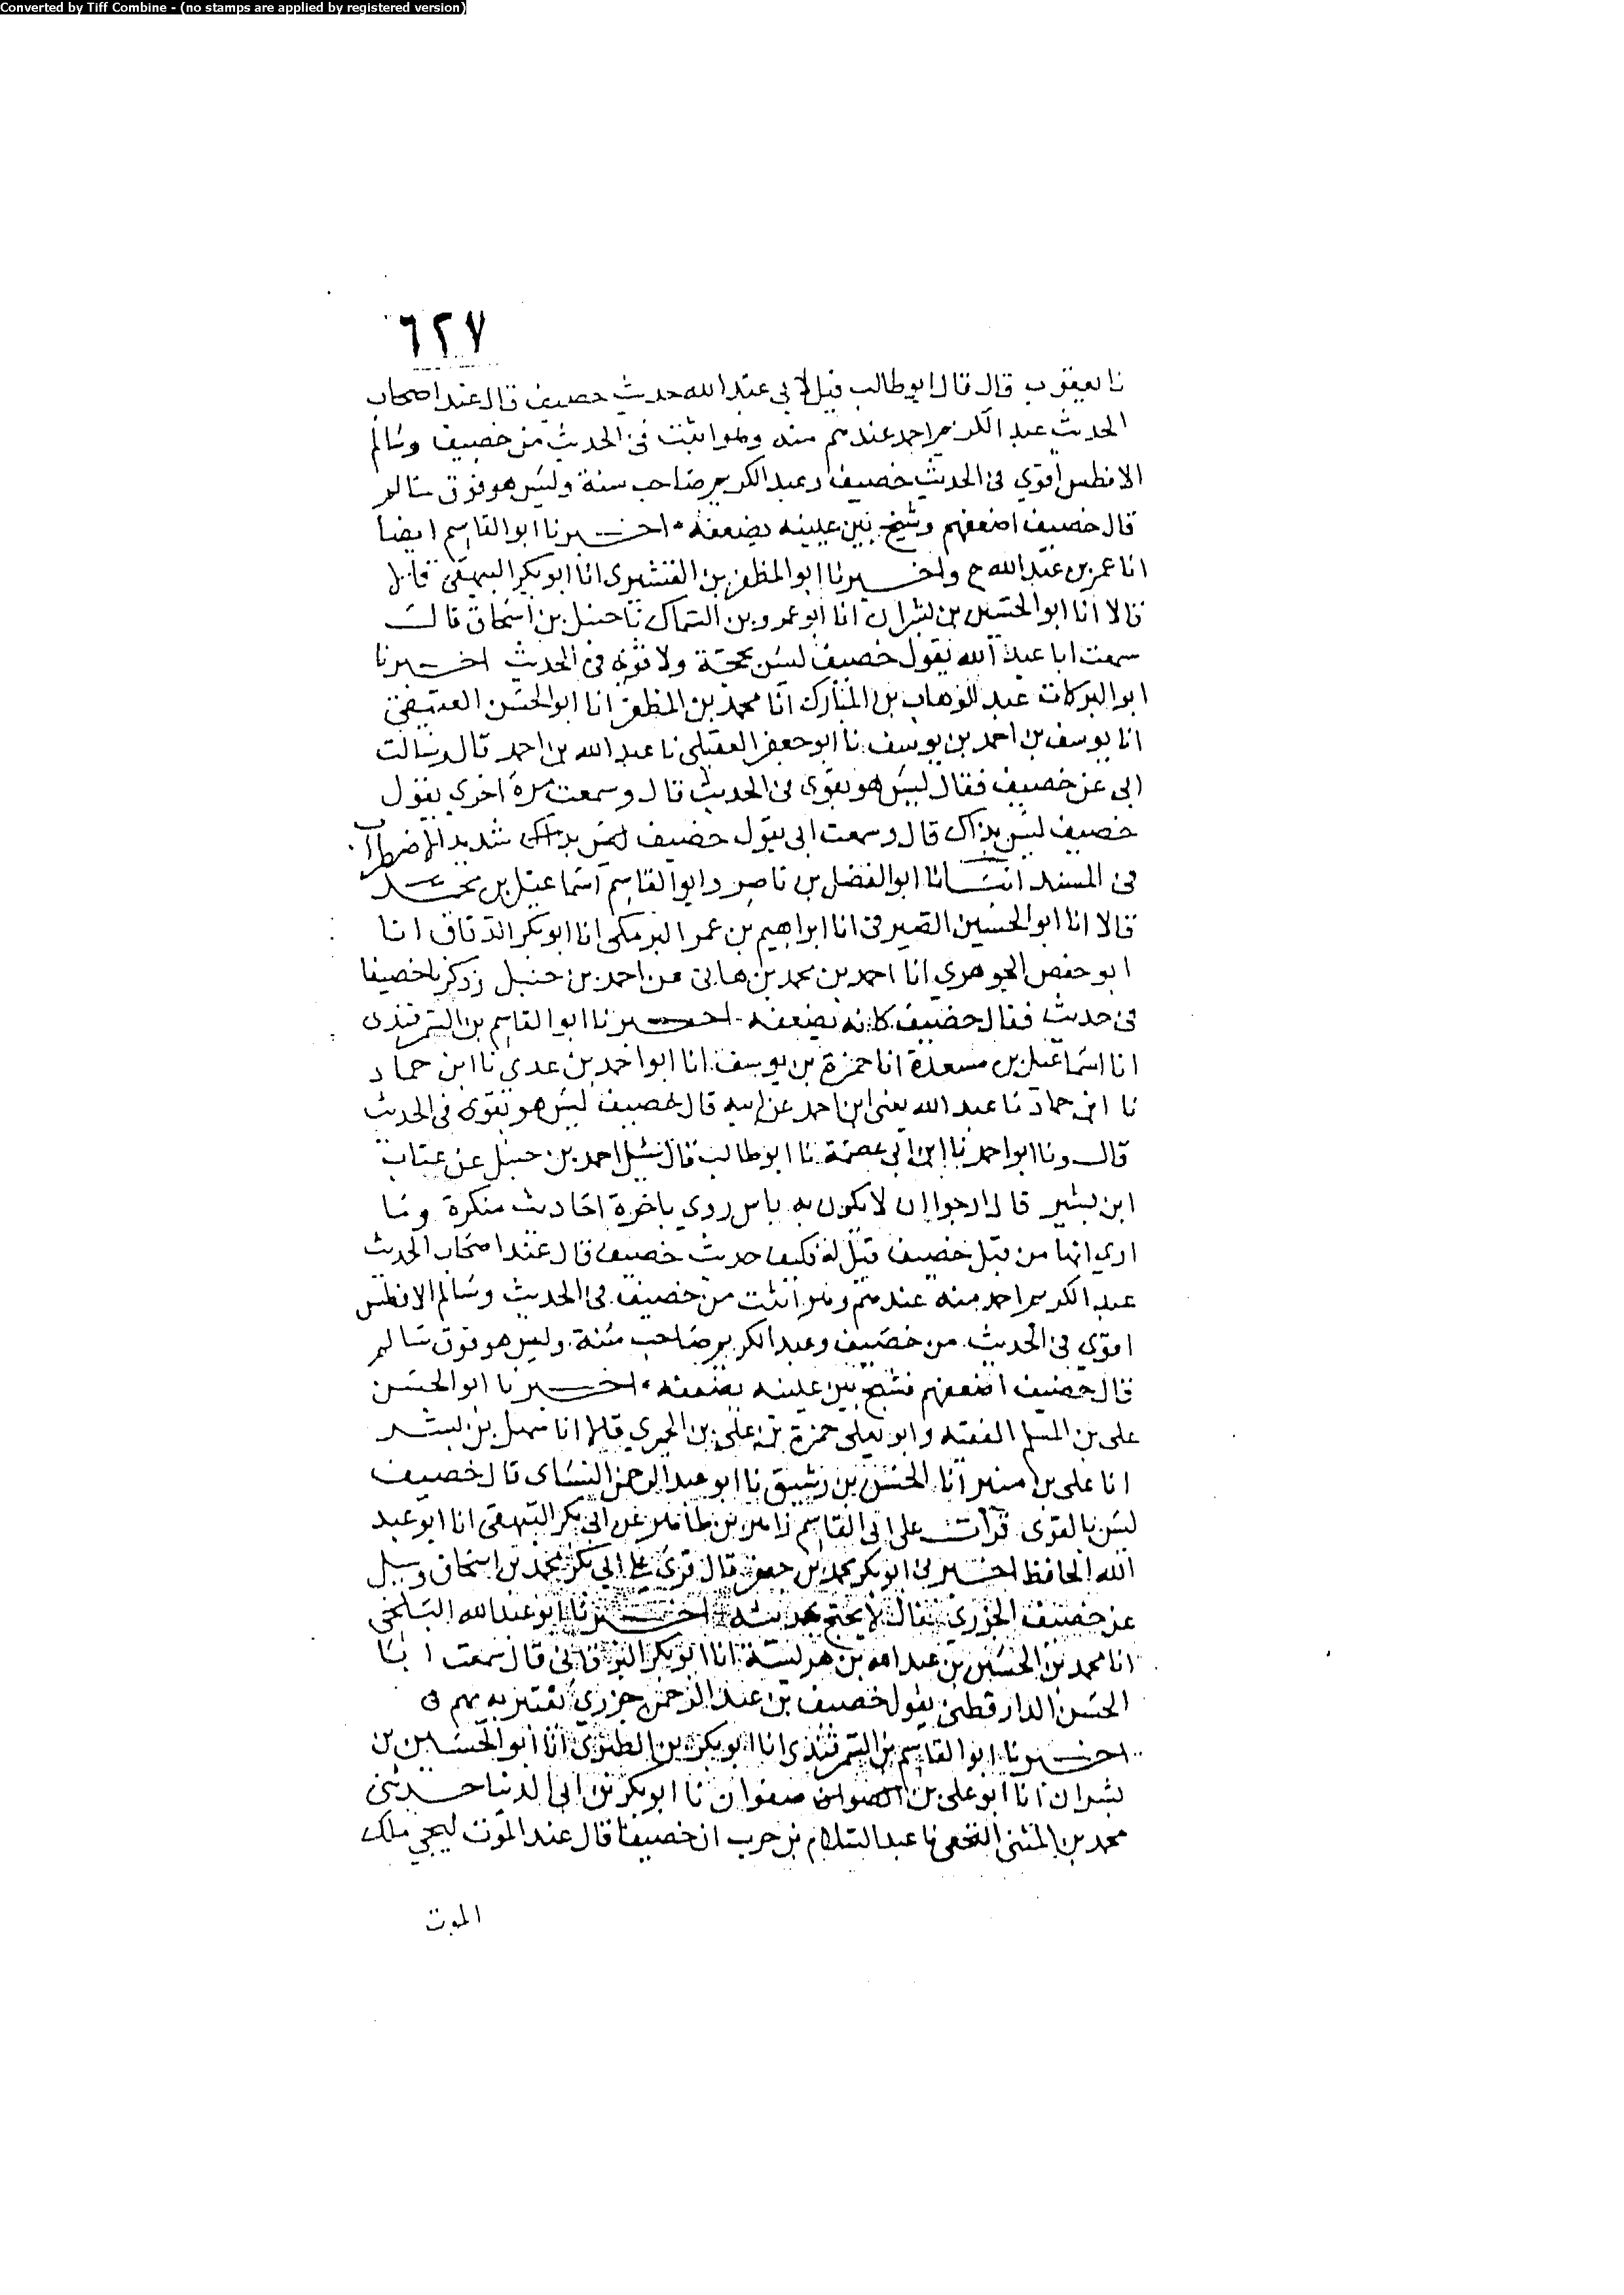 Converted by Tiff Combine - (no stamps are applied by registered version)
٦٢٧
نا يعقوب قال قال ابو طالب قيل لابي عبد الله حديث خصيف قال عند اصحاب
الحديث عبد الكريم احمد عندهم منه وهو اثبت في الحديث من خصيف وسالم
الافطس اقوي في الحديث خصيف وعبد الكريم صاحب سنة وليس هو فوق سالم
قال خصيف اضعفهم وشيخ بين عيينه يضعفه اخبرنا ابو القاسم ايضا
انا عمر بن عبد الله ح واخبرنا ابو المظفر بن القشيري انا ابو بكر البيهقي
قالا انا ابو الحسين بن بشران انا ابو عمرو بن السماك نا حنبل بن اسحاق قال
سمعت ابا عبد الله يقول خصيف ليس بحجة ولا قوي في الحديث اخبرنا
ابو البركات عبد الوهاب بن المبارك انا محمد بن المظفر انا ابو الحسن العتيقي
انا يوسف بن احمد بن يوسف نا ابو جعفر العقيلي نا عبد الله بن احمد قال وسالت
ابي عن خصيف فقال ليس هو بقوي في الحديث قال وسمعت مرة اخري يقول
خصيف ليس بذاك قال وسمعت ابي يقول خصيف ليس بذاك شديد الاضطراب
في المسند انبانا ابو الفضل بن ناصر وابو القاسم اسماعيل بن محمد
قالا انا ابو الحسين الصيرفي انا ابراهيم بن عمر البرمكي انا ابو بكر الدقاق انا
ابو حفص الجوهري انا احمد بن محمد بن هاني عن احمد بن حنبل وذكر خصيفا
في حديث فقال خصيف كانه يضعفه اخبرنا ابو القاسم بن السمرقندي
انا اسماعيل بن مسعدة انا حمزة بن يوسف انا ابو احمد بن عدي نا ابن حماد
نا ابن حماد نا عبد الله يعني ابن احمد عن ابيه قال خصيف ليس هو بقوي في الحديث
قال ونا ابو احمد نا ابن ابي عصمة نا ابو طالب قال سئل احمد بن حنبل عن عتاب
ابن بشير قال ارجوا ان لا يكون به باس روي باخرة احاديث منكرة وما
اري انها من قبل خصيف قيل له فكيف حديث خصيف قال عند اصحاب الحديث
عبد الكريم احمد منه عندهم وهو اثبت من خصيف في الحديث وسالم الافطس
اقوي في الحديث من خصيف وعبد الكريم صاحب سنة وليس هو فوق سالم
قال خصيف اضعفهم فشيخ بين عيينه يضعفه اخبرنا ابو الحسن
علي بن المسلم الفقيه وابو يعلي حمزة بن علي بن الحبوبي قالا انا سهل بن بشر
انا علي بن منير انا الحسن بن رشيق نا ابو عبد الرحمن النسائ قال خصيف
ليس بالقوي قرات علي ابي القاسم زاهر بن طاهر عن ابي بكر البيهقي انا ابو عبد
الله الحافظ اخبرني ابو بكر محمد بن جعفر قال قرئ علي ابي بكر محمد بن اسحاق وسيل
عن خصيف الجزري فقال لا يحتج بحديثه اخبرنا ابو عبد الله البلخي
انا محمد بن الحسين بن عبد الله بن هريسة انا ابو بكر البرقاني قال سمعت ابا
الحسن الدارقطني يقول خصيف بن عبد الرحمن جزري يعتبر به يهم في
اخبرنا ابو القاسم بن السمرقندي انا ابو بكر بن الطبري انا ابو الحسين بن
بشران انا ابو علي بن صفوان نا ابو بكر بن ابي الدنيا حدثني
محمد بن المثني نا عبد السلام بن حرب ان خصيفا قال عند الموت ليجي ملك
الموت